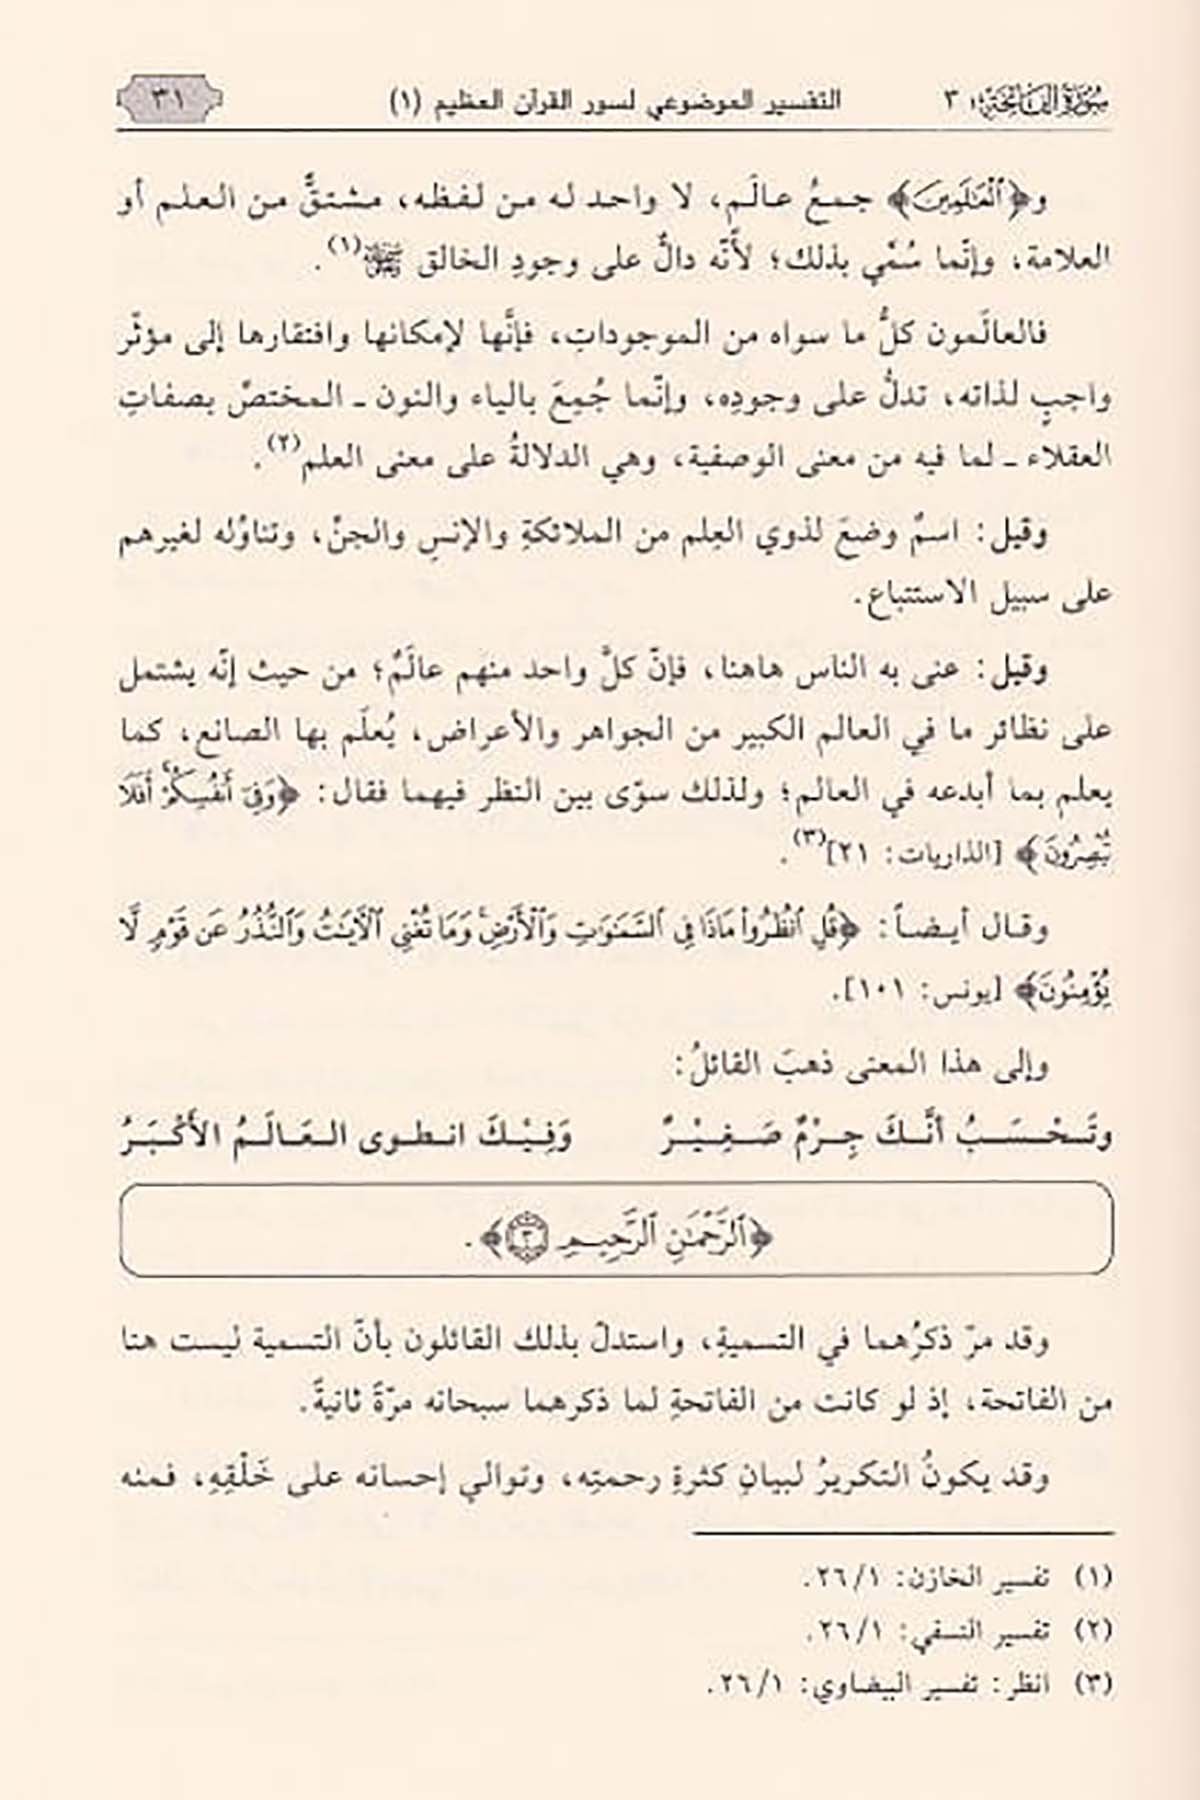 سورة الفاتحة: ٣ التفسير الموضوعي لسور القرآن العظيم (١) ٣١
و﴿ٱلْعَٰلَمِينَ﴾ جمعُ عالَم، لا واحد له من لفظه، مشتقٌّ من العلم أو
العلامة، وإنّما سُمّي بذلك؛ لأنّه دالٌّ على وجودِ الخالق ﷻ(١).
فالعالَمون كلُّ ما سواه من الموجوداتِ، فإنَّها لإمكانها وافتقارها إلى مؤثّر
واجبٍ لذاته، تدلُّ على وجودِه، وإنّما جُمِعَ بالياء والنون ـ المختصّ بصفاتِ
العقلاء ـ لما فيه من معنى الوصفية، وهي الدلالةُ على معنى العلم(٢).
وقيل: اسمٌ وضعَ لذوي العِلم من الملائكةِ والإنسِ والجنّ، وتناوُله لغيرهم
على سبيل الاستتباع.
وقيل: عنى به الناس هاهنا، فإنّ كلَّ واحد منهم عالَمٌ؛ من حيث إنّه يشتمل
على نظائر ما في العالم الكبير من الجواهر والأعراض، يُعلَم بها الصانع، كما
يعلم بما أبدعه في العالم؛ ولذلك سوّى بين النظر فيهما فقال: ﴿وَفِىٓ أَنفُسِكُمْ ۚ أَفَلَا
تُبْصِرُونَ﴾ [الذاريات: ٢١](٣).
وقال أيضاً: ﴿قُلِ ٱنظُرُوا۟ مَاذَا فِى ٱلسَّمَٰوَٰتِ وَٱلْأَرْضِ ۚ وَمَا تُغْنِى ٱلْءَايَٰتُ وَٱلنُّذُرُ عَن قَوْمٍ لَّا
يُؤْمِنُونَ﴾ [يونس: ١٠١].
وإلى هذا المعنى ذهبَ القائلُ:
وتَـحْـسَـبُ أنَّـكَ جِـرْمٌ صَـغِـيْـرٌ وَفِيْكَ انـطـوى الـعَـالَـمُ الأَكْـبَـرُ
﴿ٱلرَّحْمَٰنِ ٱلرَّحِيمِ ٣﴾.
وقد مرّ ذكرُهما في التسميةِ، واستدلّ بذلك القائلون بأنّ التسمية ليست هنا
من الفاتحة، إذ لو كانت من الفاتحةِ لما ذكرهما سبحانه مرّةً ثانيةً.
وقد يكونُ التكريرُ لبيانِ كثرةِ رحمتِه، وتوالي إحسانه على خَلْقِهِ، فمنه
(١) تفسير الخازن: ٢٦/١.
(٢) تفسير النسفي: ٢٦/١.
(٣) انظر: تفسير البيضاوي: ٢٦/١.